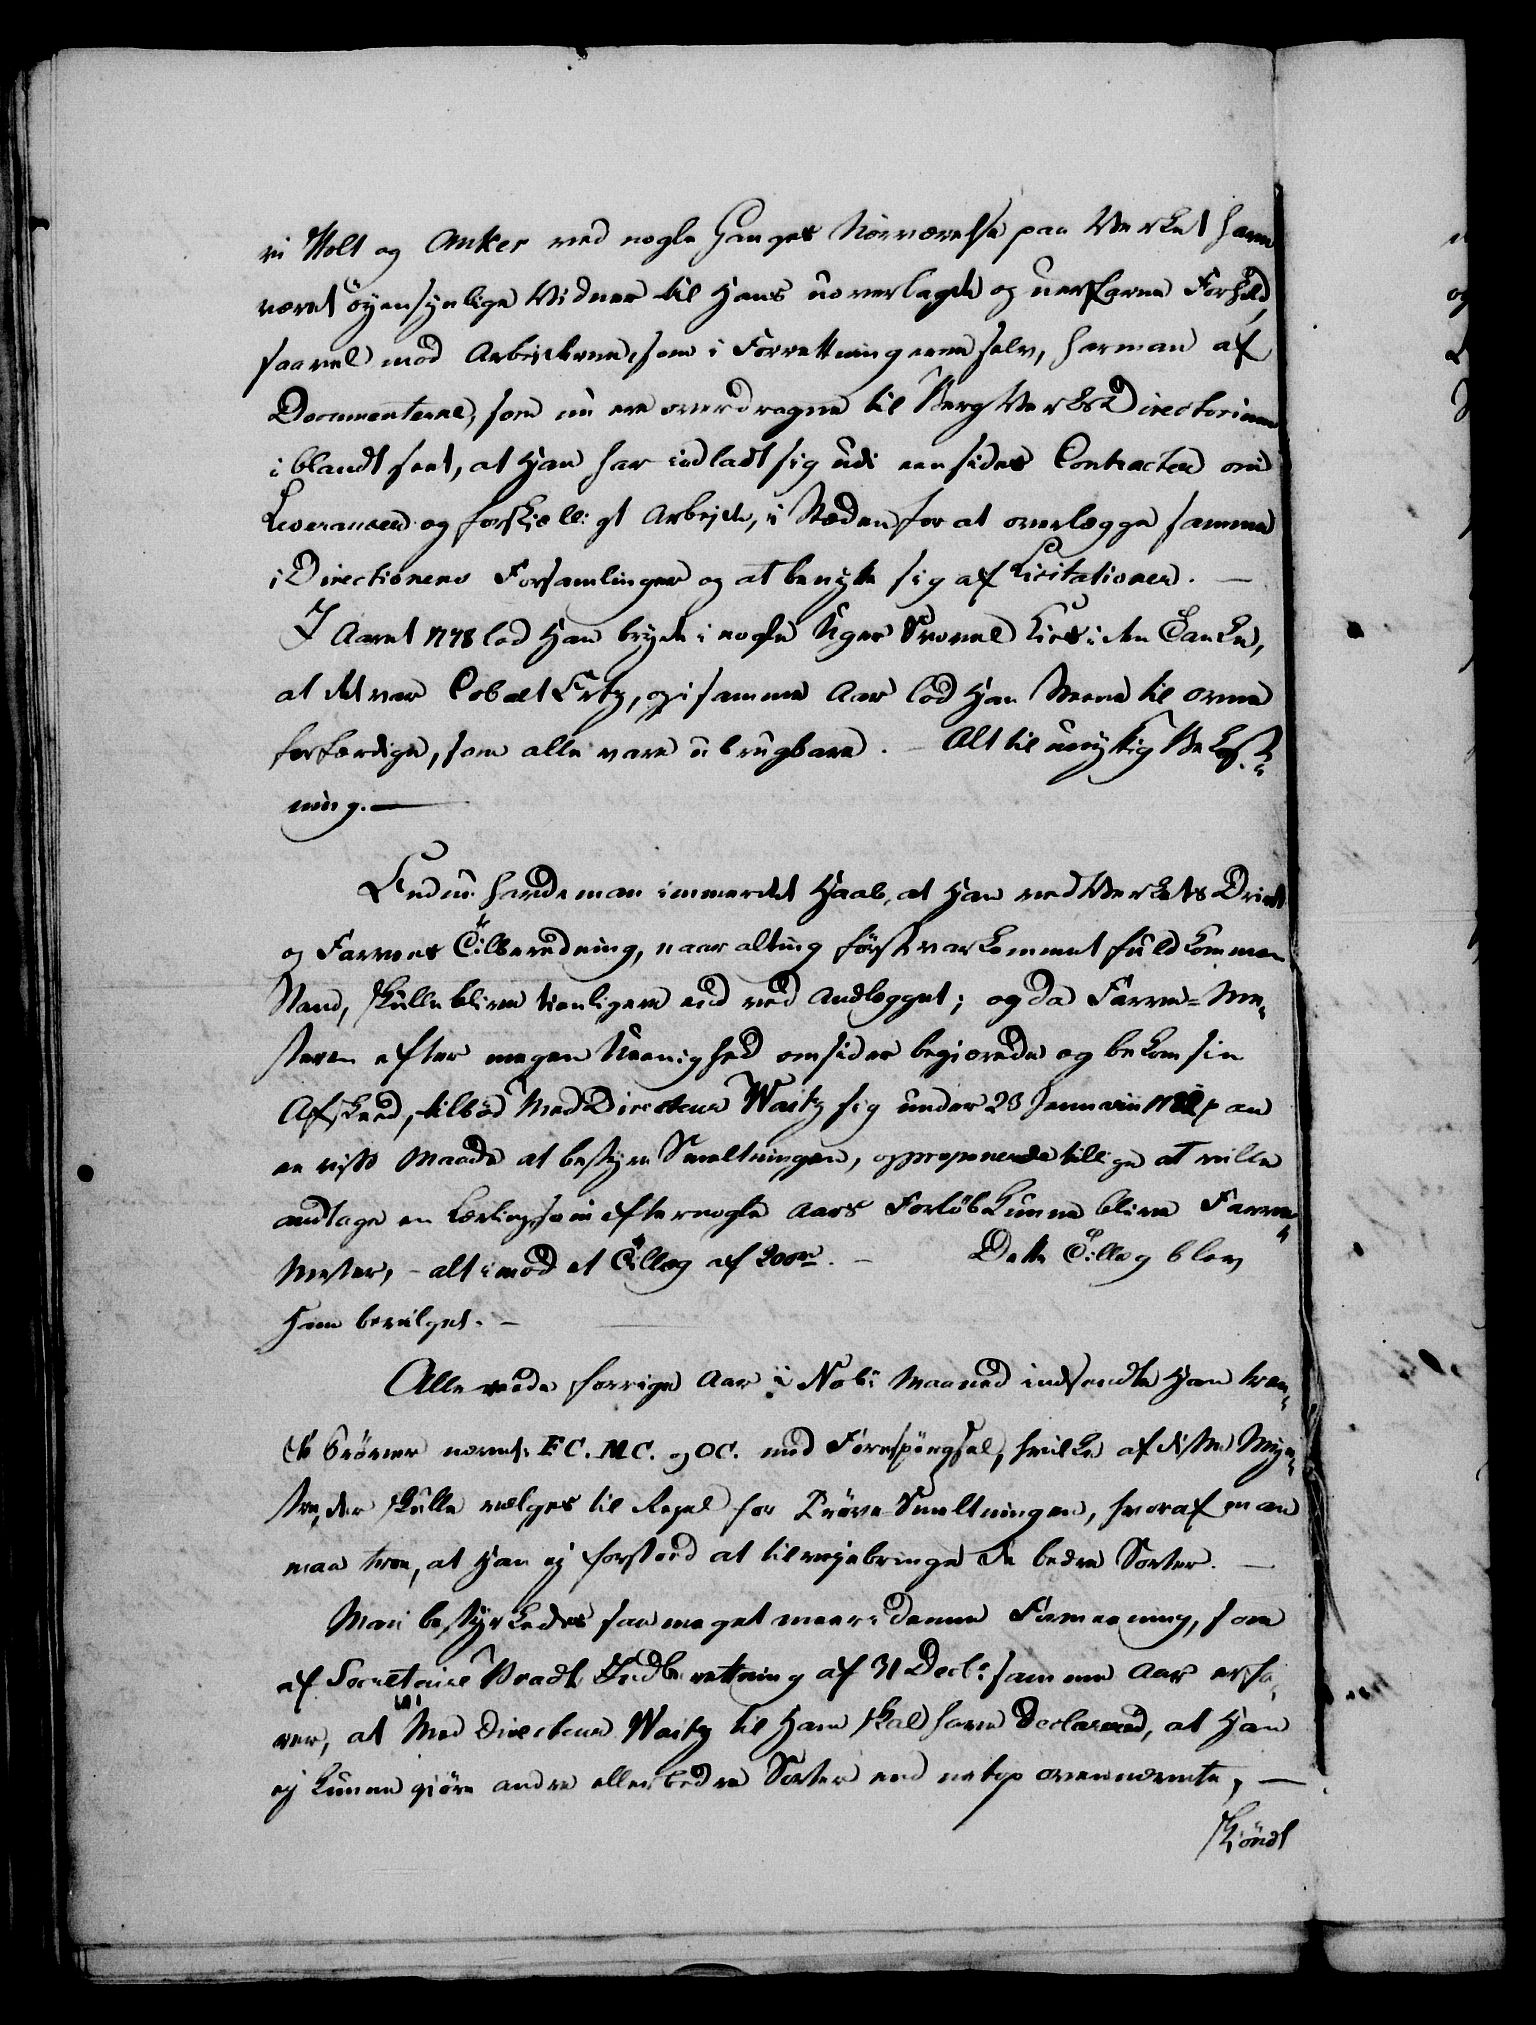 vi Holt og Anker ved nogle Ganges Nærværelse paa Werket have
været öyensynlige Vidner til Hans uoverlagte og uerfarne Forhold,
saavel mod Arbeiderne, som i Forrettningerne selv, har man af
Documenterne, som nu ere overdragne til BergWerks Directorium
iblandt seet, at Han har indladt sig udi eensides Contracter om
Leverancer og forskielligt Arbejde, i Stæden for at overlegge samme
i Directionens Forsamlinger og at benytte sig af Licitationer. —
I Aaret 1778 lod Han bryde i nogle Uger Svovel Kies i den Tanke,
at det var Cobolt Ertz, og i samme Aar lod Han Steene til ovne
forfærdige, som alle vare ubrugbare. – Alt til unyttig Bekost-
ning. —
Endnu havde man immer det Haab, at Han ved Werkets Drivt
og Farvens Tilberedning, naar alting först var kommet fuldkommen
Stand, skulle blive tienligere end ved Andlegget; og da Farve-Me-
steren efter megen Ueenighed omsider begierede og bekom sin
Afskeed, tilböd Med Directeur Waitz sig under 23 Januarii paa
en vis Maade at bestyre Smeltningen, og proponerede tillige at ville
andtage en Lærling, som efter nogle Aars Forlöb kunne blive Farve-
Mester, – alt imod et Tillæg af 200 rd. – Dette Tillæg blev
Ham bevilget. –
Allerede forrige Aar i Nobr Maaned indsendte Han tren-
de Pröver nævnt: FC. MC. og OC. med Forespörgsel, hvilke af disse Myn-
stre, der skulle vælges til Regel for Pröve-Smeltningen, hvoraf man
maa troe, at Han ej forstoed at tilvejebringe de bedre Sorter. —
Man bestyrkedes saa meget meer i denne Formeening, som
af Secretaire Bradt Indberettning af 31 Decbr: samme Aar erfa-
res, at Med Directeur Waitz til Ham skal have declareret, at Han
ej kunne giöre andre eller bedre Sorter end netop ovennævnte, —
Skiöndt